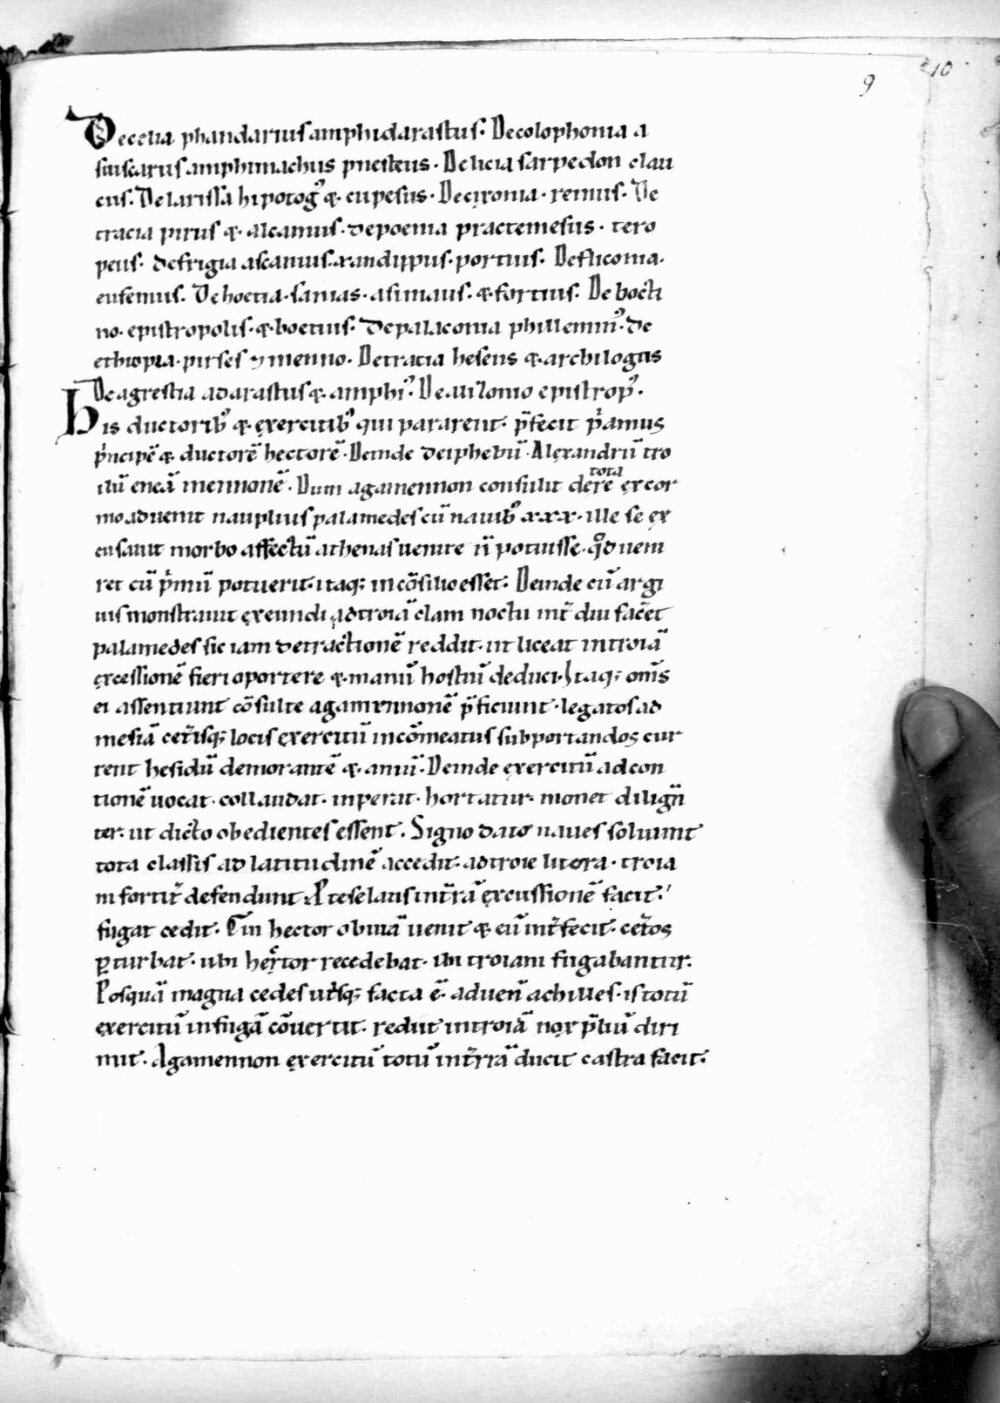 9 10
De celia phandarius amphidarastus. De colophonia a
suscarus amphimachus pnesteus. De licia sarpedon clau
cus. De larissa hipotogꝰ & cupesus. De cironia. remus. De
tracia pirus & alcamus. de poenia practemesus. tero
peus. de frigia ascanius. & andippus. portius. De fliconia.
eufemus. De boetia. samas. asimaus. & fortius. De bocti
no. epistropolis. & boetius. De palaconia philleminꝰ. de
ethiopia. pirses & menno. De tracia hesens & archilogus
De agrestia adarastus & amphiꝰ. De avilonio epistropꝰ.
His ductoribꝰ & exercitibꝰ qui pararent. p̄fecit pͥamus
pͥncipē & ductorē hectorē. Deinde deiphebū. Alexandrū tro
ilū eneā mennonē. Dum agamennon consulit de re tota ex cor
mo advenit nauplius palamedes cū navibꝰ xxx. ille se ex
cusavit morbo affectū athenas venire n̄ potuisse. qd̄ veni
ret cū pͥmū potuerit. itaq; in cōsilio esset. Deinde cū argi
vis monstravit exeundi ad troiā clam noctu int̄ diu facēt
palamedes sic iam detractionē reddit. ut liceat in troiā
excessionē fieri oportere & manū hostiū deduci. Itaq; om̄s
ei assentiunt cōsulte agamennonē p̄ficiunt. legatos ad
mesiā cet̄isq; locis exercitū in cōmeatus subportandos cur
rent hesidū demorantē & aniū. Deinde exercitū ad con
tionē vocat. collaudat. inperat. hortatur. monet dilign̄
ter. ut dicto obedientes essent. Signo dato naves solvunt
tota classis ad latitudinē accedit. ad troie litora. troia
ni fortit̄ defendunt. Pteselaus in t̄rā excussionē facit.
fugat cedit. Tin hector obviā venit & eū int̄fecit. cet̄os
p̱turbat. ubi hector recedebat. ibi troiani fugabantur.
Posquā magna cedes ut̄sq; facta ē. advenͭ achilles. is totū
exercitū in fugā cōvertit. reduit in troiā nox p̄liū diri
mit. Agamennon exercitū totū in t̄rrā ducit castra facit.